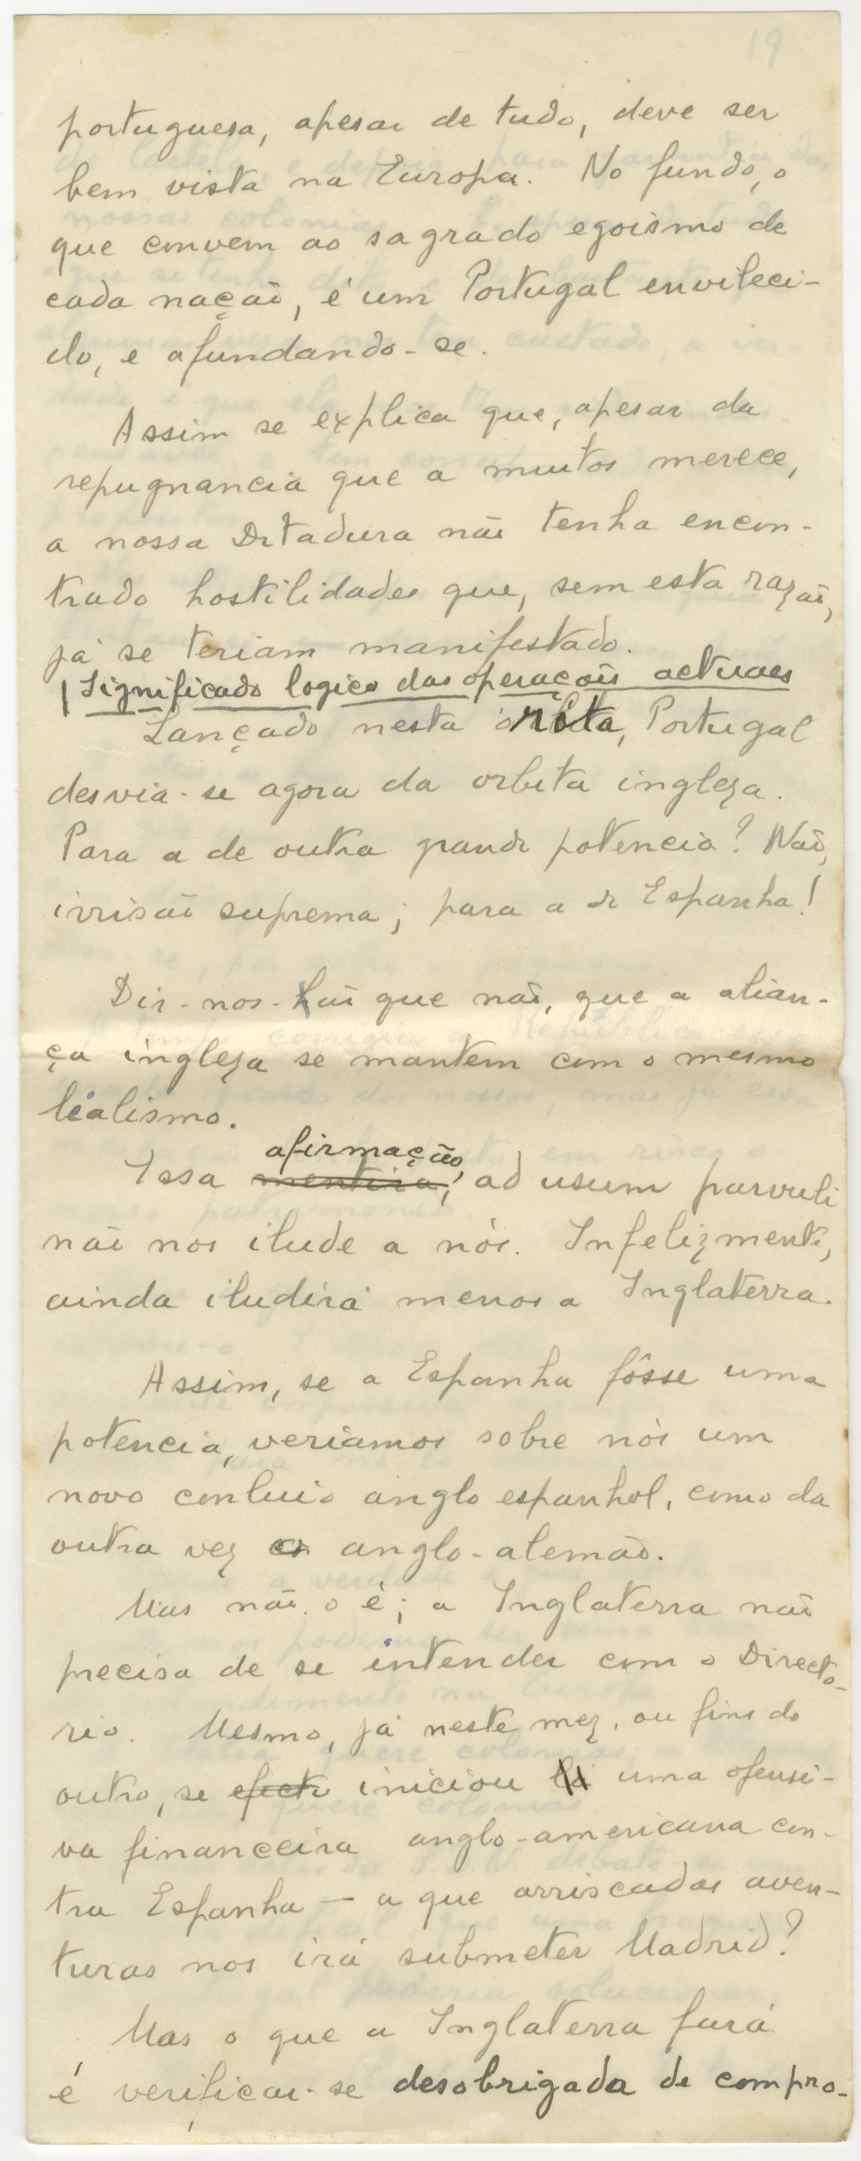 19
portuguesa, apesar de tudo, deve ser
bem vista na Europa. No fundo, o
que convem ao sagrado egoismo de
cada nação, é um Portugal envileci-
do, e afundando-se.
Assim se explica que, apesar da
repugnancia que a muitos merece,
a nossa Ditadura não tenha encon-
trado hostilidades que, sem esta razão,
já se teriam manifestado.
Significado logico das operações actuaes
Lançado nesta rota, Portugal
desvia-se agora da orbita ingleza.
Para a de outra grande potencia? Não,
irrisão suprema; para a de Espanha!
Dir-nos-hão que não, que a alian-
ça ingleza se mantem com o mesmo
lealismo.
afirmação,
Essa mentira, ad usum parvuli
não nos ilude a nós. Infelizmente,
ainda iludirá menos a Inglaterra.
Assim, se a Espanha fôsse uma
potencia, veriamos sobre nós um
novo conluio anglo espanhol, como da
outra vez o anglo-alemão.
Mas não o é; a Inglaterra não
precisa de se intender com o Directo-
rio. Mesmo, já neste mez, ou fins do
outro, se efecti iniciou lá uma ofensi-
va financeira anglo-americana con-
tra Espanha — a que arriscadas aven-
turas nos irá submeter Madrid?
Mas o que a Inglaterra fará
é verificar-se desobrigada de compro-